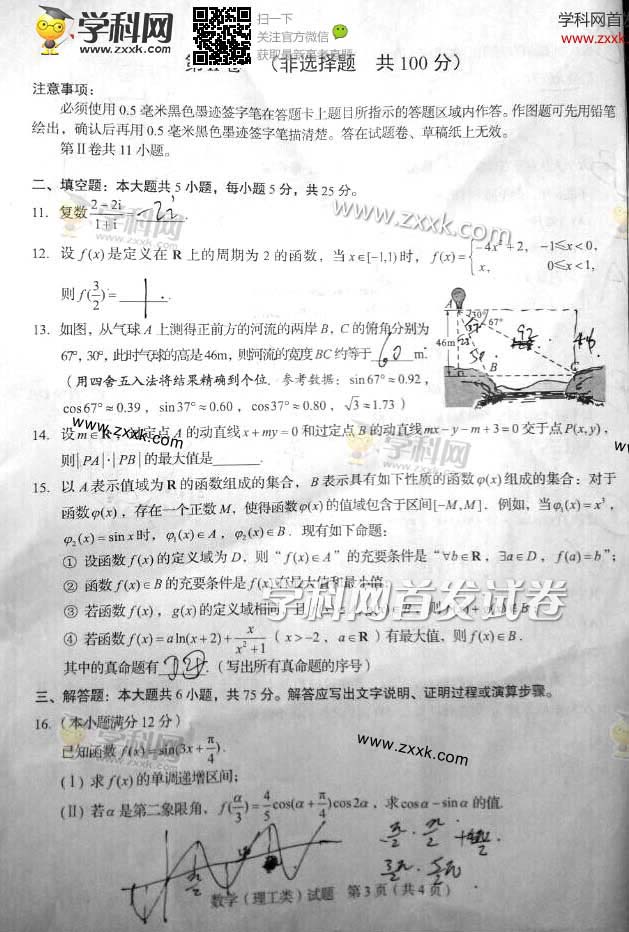 学科网
www.zxxk.com
扫一下
关注官方微信
获取最新高考真题
学科网首发
www.zxxk.
(非选择题 共100分)
注意事项:
必须使用0.5毫米黑色墨迹签字笔在答题卡上题目所指示的答题区域内作答。作图题可先用铅笔
绘出,确认后再用0.5毫米黑色墨迹签字笔描清楚。答在试题卷、草稿纸上无效。
第Ⅱ卷共11小题。
二、填空题:本大题共5小题,每小题5分,共25分。
11. 复数(2−2i)/(1+i) = -2i.
www.zxxk.com
12. 设f(x)是定义在R上的周期为2的函数,当x∈[−1,1)时,f(x)={−4x²+2, −1≤x<0, x, 0≤x<1,
则f(3/2)= 1 .
13. 如图,从气球A上测得正前方的河流的两岸B,C的俯角分别为
67°,30°,此时气球的高是46m,则河流的宽度BC约等于 60 m.
(用四舍五入法将结果精确到个位.参考数据:sin67°≈0.92,
cos67°≈0.39,sin37°≈0.60,cos37°≈0.80,√3≈1.73)
A 30° 67°
46m
92
B C
www.zxxk.com
14. 设m∈R,过定点A的动直线x+my=0和过定点B的动直线mx−y−m+3=0交于点P(x,y),
则|PA|·|PB|的最大值是 .
学科网
www.zxxk.com
15. 以A表示值域为R的函数组成的集合,B表示具有如下性质的函数φ(x)组成的集合:对于
函数φ(x),存在一个正数M,使得函数φ(x)的值域包含于区间[−M,M].例如,当φ₁(x)=x³,
φ₂(x)=sinx时,φ₁(x)∈A,φ₂(x)∈B.现有如下命题:
① 设函数f(x)的定义域为D,则“f(x)∈A”的充要条件是“∀b∈R,∃a∈D,f(a)=b”;
② 函数f(x)∈B的充要条件是f(x)有最大值和最小值
学科网首发试卷
③ 若函数f(x),g(x)的定义域相同,且
④ 若函数f(x)=aln(x+2)+x/(x²+1)(x>−2,a∈R)有最大值,则f(x)∈B.
其中的真命题有 .(写出所有真命题的序号)
三、解答题:本大题共6小题,共75分。解答应写出文字说明、证明过程或演算步骤。
16.(本小题满分12分)
已知函数f(x)=sin(3x+π/4).
www.zxxk.com
(Ⅰ)求f(x)的单调递增区间;
(Ⅱ)若α是第二象限角,f(α/3)=4/5cos(α+π/4)cos2α,求cosα−sinα的值.
数学(理工类)试题 第3页(共4页)